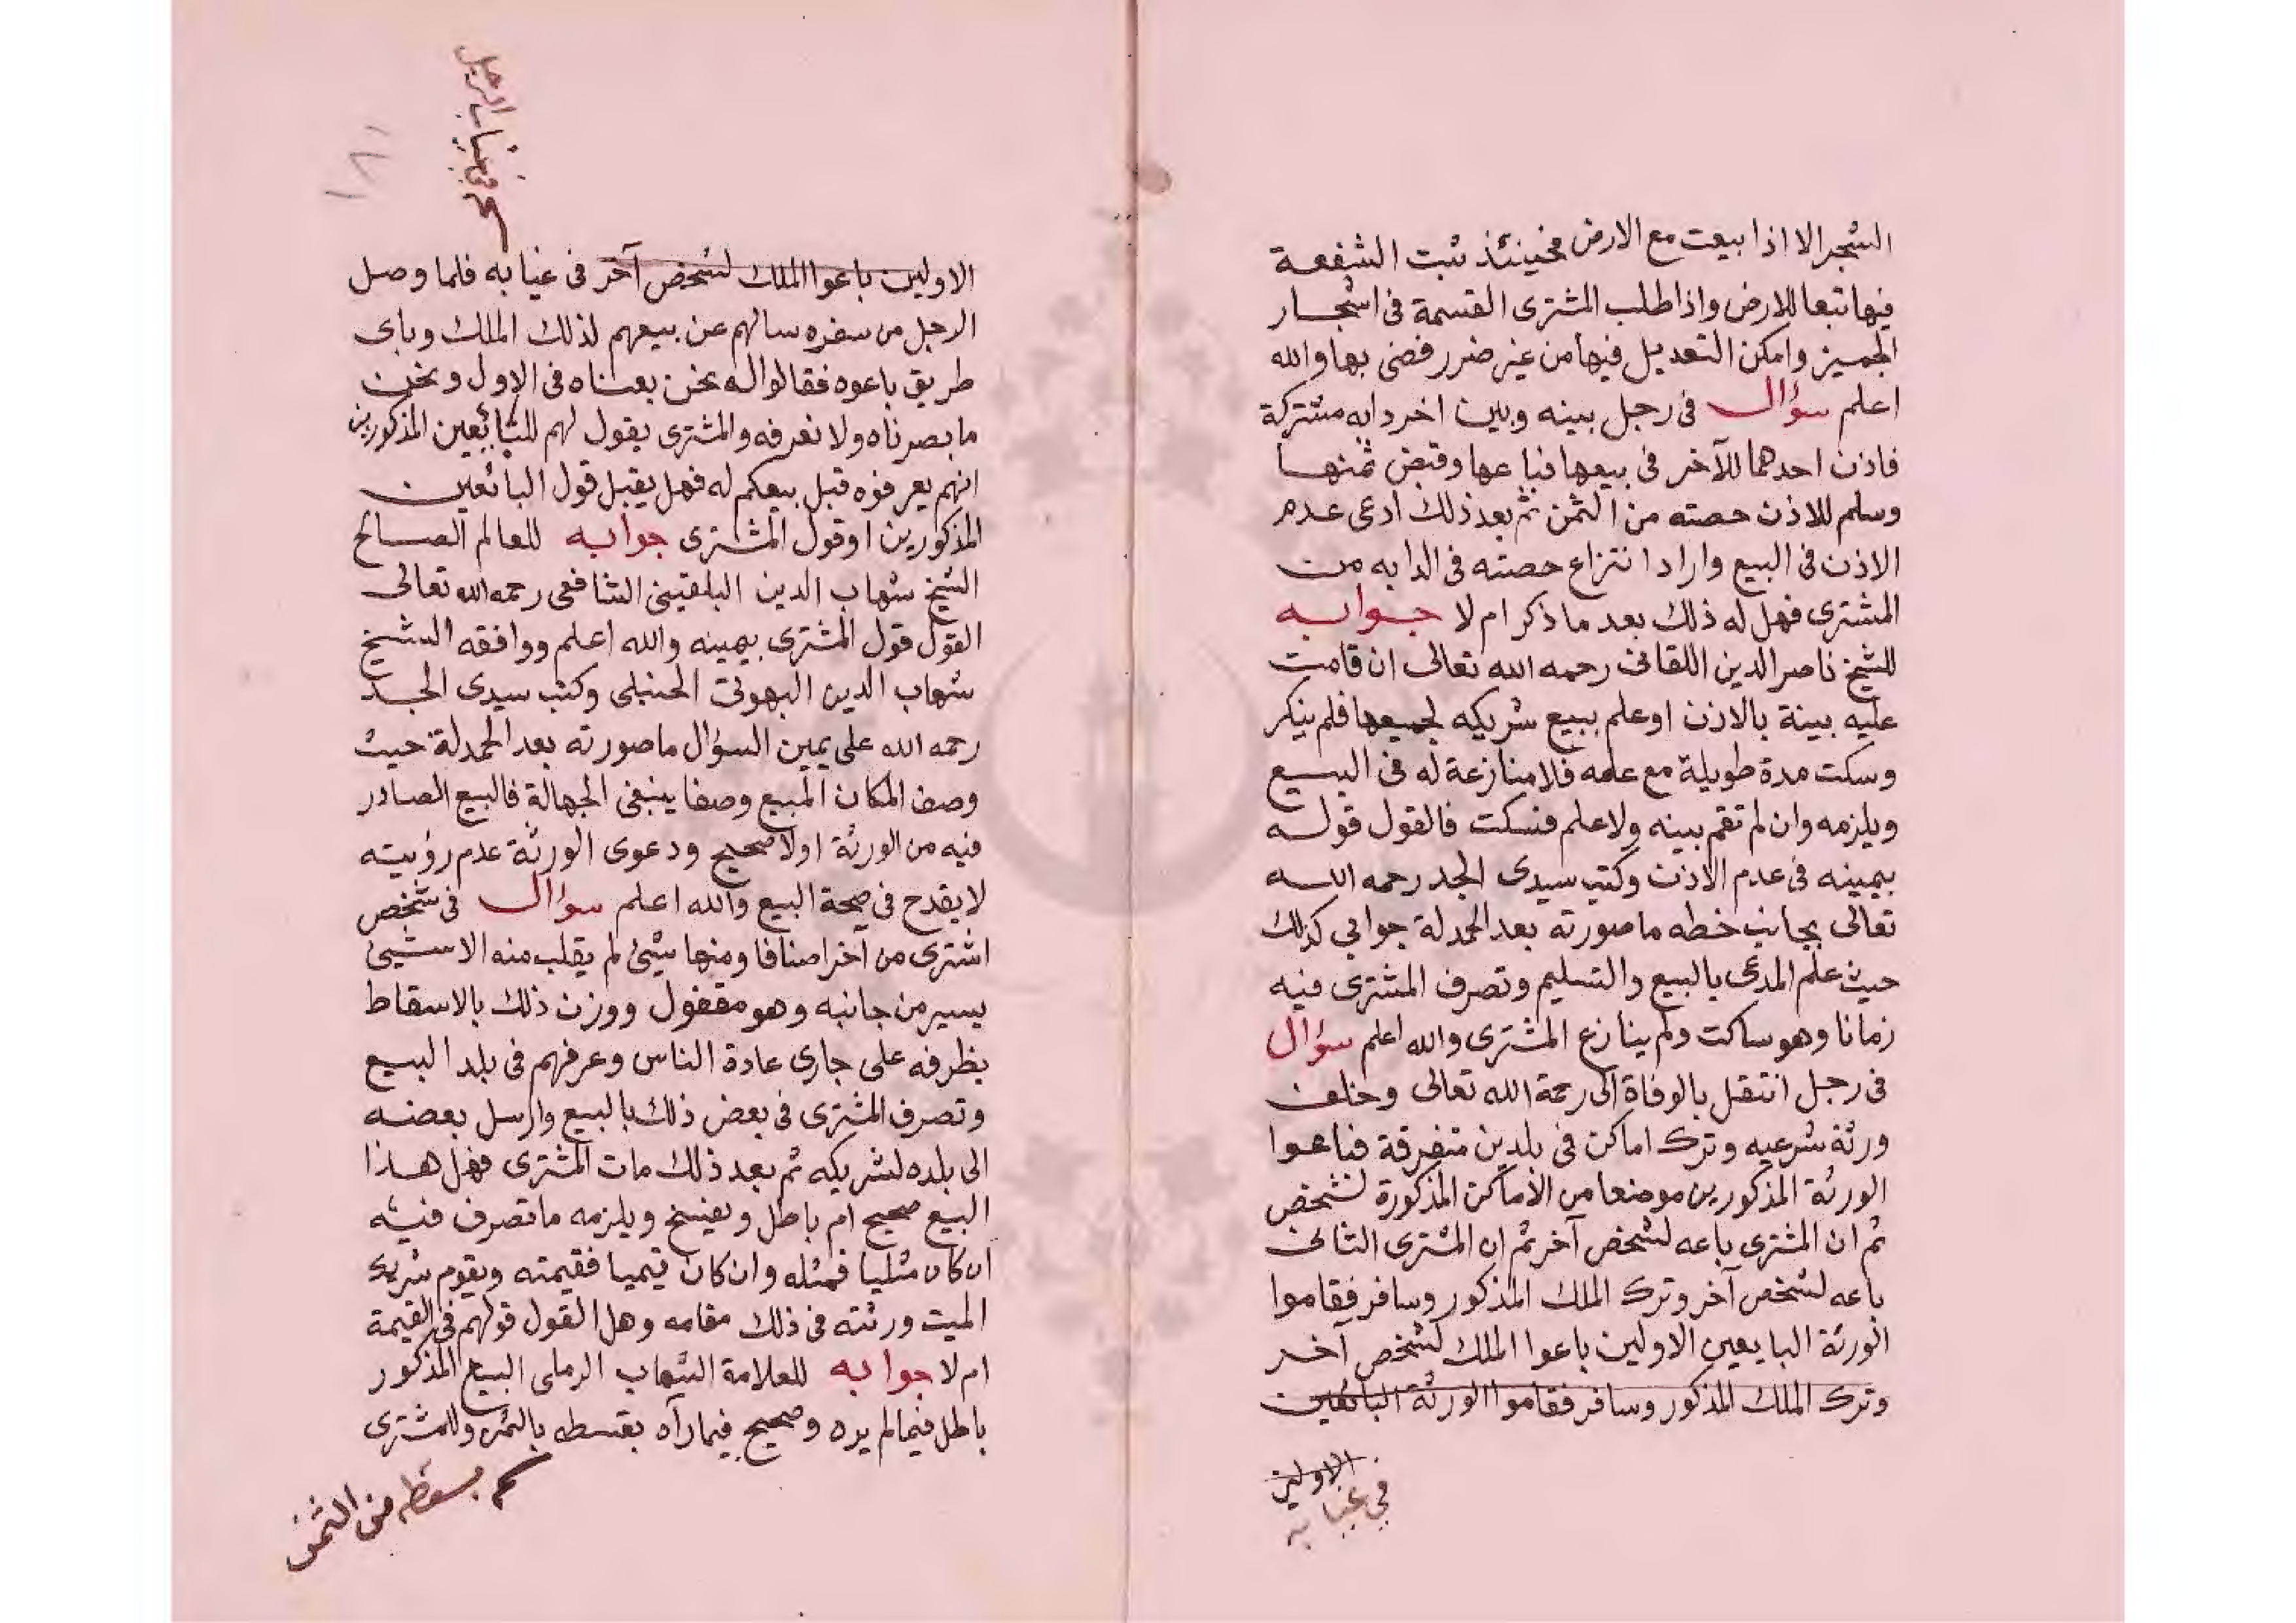 الشجر الا اذا بيعت مع الارض فحينئذ ثبت الشفعة
فيها تبعا للارض واذا طلب المشترى القسمة فى اشجار
الجميز وامكن التعديل فيها من غير ضرر قضى بها والله
اعلم سؤال فى رجل بينه وبين اخر دابه مشتركة
فاذن احدهما للآخر فى بيعها فباعها وقبض ثمنها
وسلم للاذن حصته من الثمن ثم بعد ذلك ادعى عدم
الاذن فى البيع واراد انتزاع حصته فى الدابه من
المشترى فهل له ذلك بعد ما ذكر ام لا جوابه
للشيخ ناصر الدين اللقانى رحمه الله تعالى ان قامت
عليه بينة بالاذن او علم ببيع شريكه لجميعها فلم ينكر
وسكت مدة طويلة مع علمه فلا منازعة له فى البيع
ويلزمه وان لم تقم بينه ولا علم فسكت فالقول قوله
بيمينه فى عدم الاذن وكتب سيدى الجد رحمه الله
تعالى بجانب خطه ما صورته بعد الحمدلة جوابى كذلك
حيث علم المدعى بالبيع والتسليم وتصرف المشترى فيه
زمانا وهو ساكت ولم ينازع المشترى والله اعلم سؤال
فى رجل انتقل بالوفاة الى رحمة الله تعالى وخلف
ورثة شرعيه وترك اماكن فى بلدين متفرقة فباعوا
الورثة المذكورين موضعا من الأماكن المذكورة لشخص
ثم ان المشترى باعه لشخص آخر ثم ان المشترى الثانى
باعه لشخص آخر وترك الملك المذكور وسافر فقاموا
الورثة البايعين الاولين باعوا الملك لشخص آخر
وترك الملك المذكور وسافر فقاموا الورثة البائعين
الاولين
فى غيابه
فى غياب الرجل
١٨١
الاولين باعوا الملك لشخص آخر فى غيابه فلما وصل
الرجل من سفره سالهم عن بيعهم لذلك الملك وباى
طريق باعوه فقالوا له نحن بعناه فى الاول ونحن
ما بصرناه ولا نعرفه والمشترى يقول لهم للبائعين المذكورين
انهم يعرفوه قبل بيعكم له فهل يقبل قول البائعين
المذكورين او قول المشترى جوابه للعالم الصالح
الشيخ شهاب الدين البلقينى الشافعى رحمه الله تعالى
القول قول المشترى بيمينه والله اعلم ووافقه الشيخ
شهاب الدين البهوتى الحنبلى وكتب سيدى الجد
رحمه الله على يمين السؤال ما صورته بعد الحمدلة حيث
وصف المكان المبيع وصفا ينفى الجهالة فالبيع الصادر
فيه من الورثة اولا صحيح ودعوى الورثة عدم رؤيته
لا يقدح فى صحة البيع والله اعلم سؤال فى شخص
اشترى من آخر اصنافا ومنها شيئ لم يقلب منه الا شيئ
يسير من جانبه وهو مقفول ووزن ذلك بالاسقاط
بظرفه على جارى عادة الناس وعرفهم فى بلد البيع
وتصرف المشترى فى بعض ذلك بالبيع وارسل بعضه
الى بلده لشريكه ثم بعد ذلك مات المشترى فهل هذا
البيع صحيح ام باطل ويفسخ ويلزمه ما تصرف فيه
ان كان مثليا فمثله وان كان قيميا فقيمته ويقوم شريك
الميت ورثته فى ذلك مقامه وهل القول قولهم فى القيمة
ام لا جوابه للعلامة الشهاب الرملى البيع المذكور
باطل فيما لم يره وصحيح فيما رآه بقسطه بالثمن وللمشترى
بقسطه من الثمن